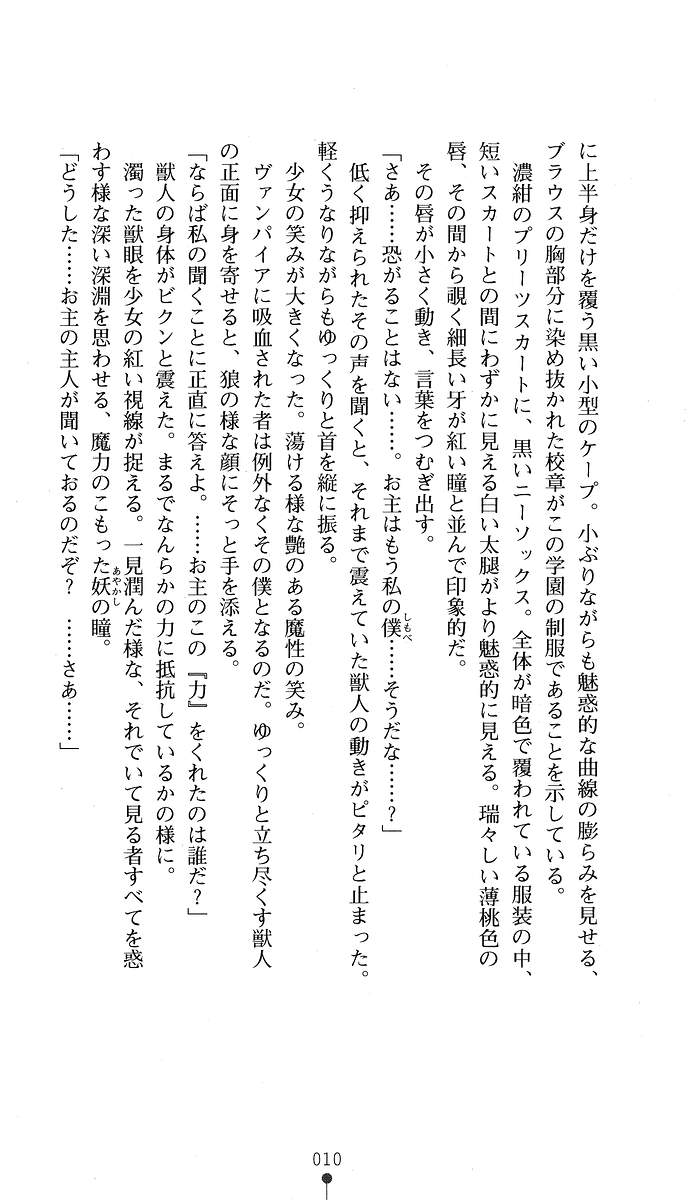 に上半身だけを覆う黒い小型のケープ。小ぶりながらも魅惑的な曲線の膨らみを見せる、
ブラウスの胸部分に染め抜かれた校章がこの学園の制服であることを示している。
濃紺のプリーツスカートに、黒いニーソックス。全体が暗色で覆われている服装の中、
短いスカートとの間にわずかに見える白い太腿がより魅惑的に見える。瑞々しい薄桃色の
唇、その間から覗く細長い牙が紅い瞳と並んで印象的だ。
その唇が小さく動き、言葉をつむぎ出す。
「さあ……恐がることはない……。お主はもう私の僕しもべ……そうだな……？」
低く抑えられたその声を聞くと、それまで震えていた獣人の動きがピタリと止まった。
軽くうなりながらもゆっくりと首を縦に振る。
少女の笑みが大きくなった。蕩ける様な艶のある魔性の笑み。
ヴァンパイアに吸血された者は例外なくその僕となるのだ。ゆっくりと立ち尽くす獣人
の正面に身を寄せると、狼の様な顔にそっと手を添える。
「ならば私の聞くことに正直に答えよ。……お主のこの『力』をくれたのは誰だ？」
獣人の身体がビクンと震えた。まるでなんらかの力に抵抗しているかの様に。
濁った獣眼を少女の紅い視線が捉える。一見潤んだ様な、それでいて見る者すべてを惑
わす様な深い深淵を思わせる、魔力のこもった妖あやかしの瞳。
「どうした……お主の主人が聞いておるのだぞ？　……さあ……」
010